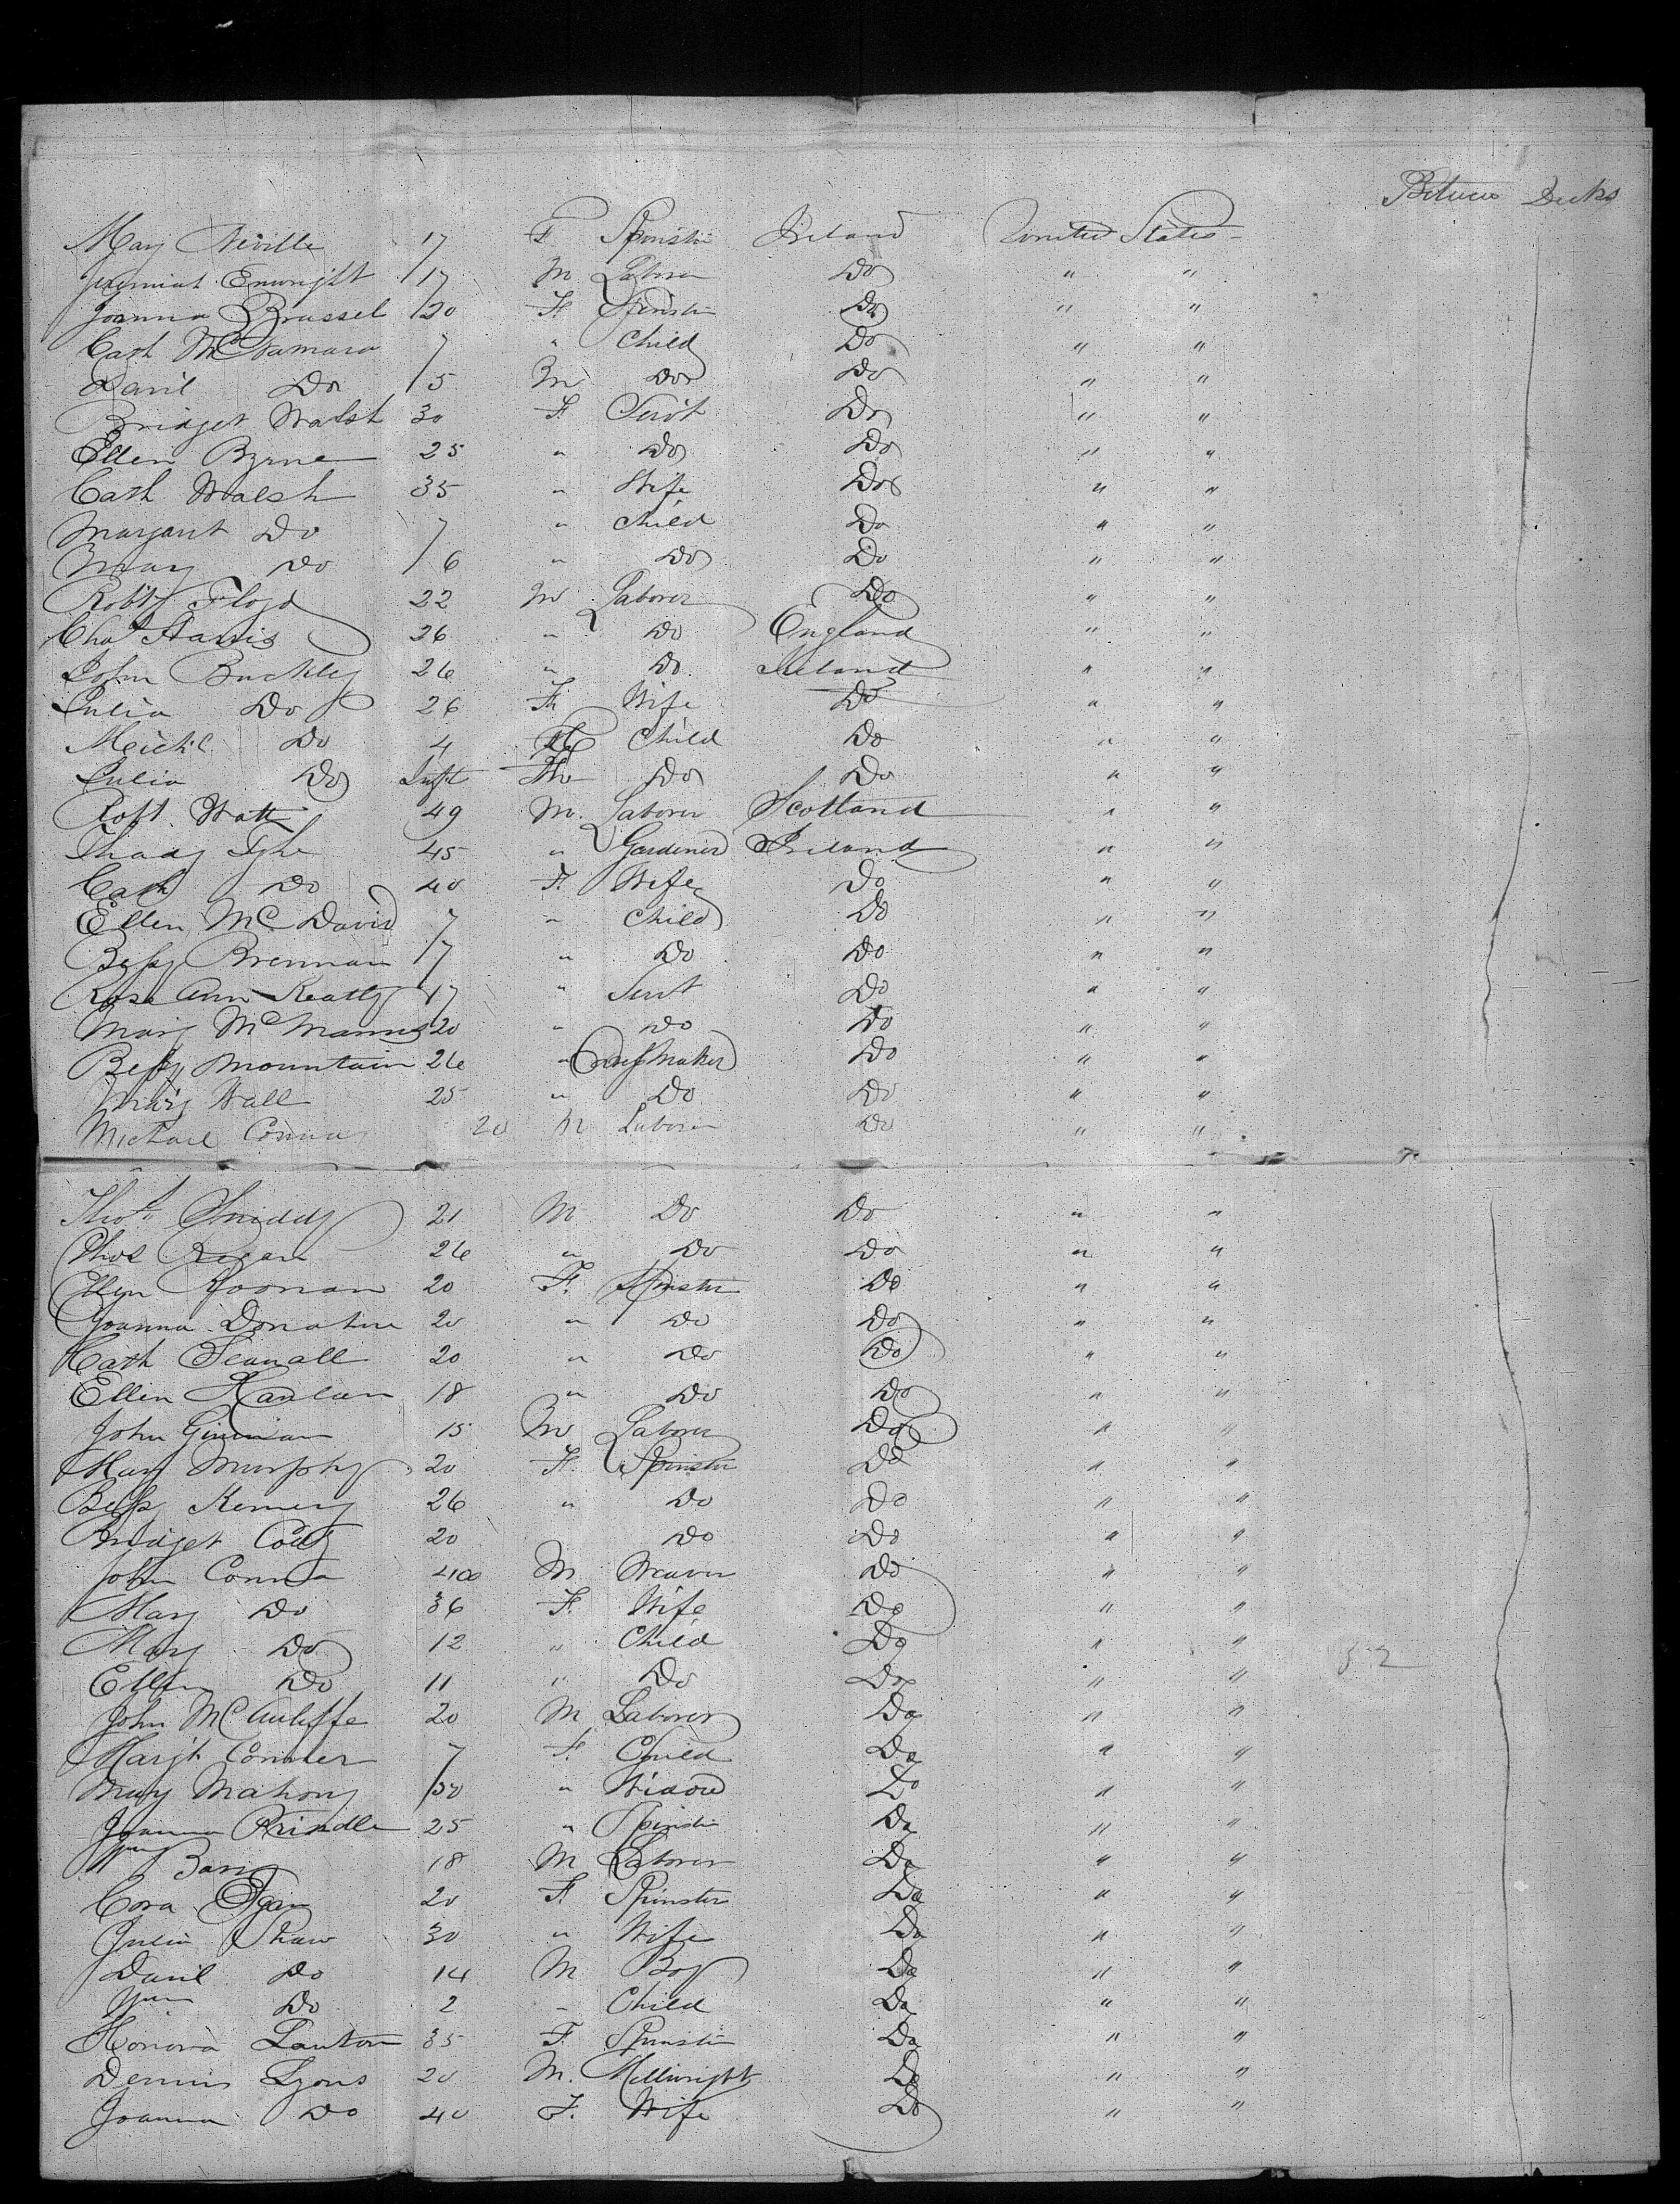 Between Decks
Mary Neville 17 F Spinster Ireland United States
Jeremiah Enwright 17 M Laborer Do " "
Joanna Brussel 20 F Spinster Do " "
Cath McNamara 7 " Child Do " "
Danil Do 5 M Do Do " "
Bridget Walsh 30 F. Servt Do " "
Ellen Byrne 25 " Do Do " "
Cath Walsh 35 " Wife Do " "
Margaret Do 7 " Child Do " "
Mary Do 6 " Do Do " "
Robt Floyd 22 M Laborer Do " "
Chas Harris 26 " Do England " "
John Buckley 26 " Do Ireland " "
Julia Do 26 F Wife Do " "
Michl Do 4 Child Do " "
Julia Do Inft Do Do " "
Robt Watt 49 M. Laborer Scotland " "
Thady Tighe 45 " Gardener Ireland " "
Cath Do 40 F. Wife Do " "
Ellen McDavid 7 " Child Do " "
Bessy Brennan 7 " Do Do " "
Rose Ann Keatly 17 " Servt Do " "
Mary McManus 20 " Do Do " "
Bessy Mountain 26 " Dressmaker Do " "
Mary Wall 25 " Do Do " "
Michael Connor 20 M Laborer Do " "
Thos 21 M Do Do " "
Thos Regan 26 " Do Do " "
Ellen Noonan 20 F. Spinster Do " "
Joanna Donahue 20 " Do Do " "
Cath Scanall 20 " Do Do " "
Ellen Hanlan 18 " Do Do " "
John 15 M Laborer Do " "
Mary Murphy 20 F. Spinster Do " "
Bessy 26 " Do Do " "
Bridget 20 Do Do " "
John Connor 40 M Weaver Do " "
Mary Do 36 F. Wife Do " "
Mary Do 12 " Child Do " "
Ellen Do 11 " Do Do " " 52
John McAuliffe 20 M Laborer Do " "
Margt Conner 7 F. Child Do " "
Mary Mahony 50 " Widow Do " "
Joanna 25 " Spinster Do " "
Wm Barry 18 M Laborer Do " "
Cora Egan 20 F. Spinster Do " "
Julia Shaw 30 " Wife Do " "
Danil Do 14 M Boy Do " "
Wm Do 2 " Child Do " "
Honora Lawton 35 F. Spinster Do " "
Dennis Lyons 20 M. Millwright Do " "
Joanna Do 40 F. Wife Do " "